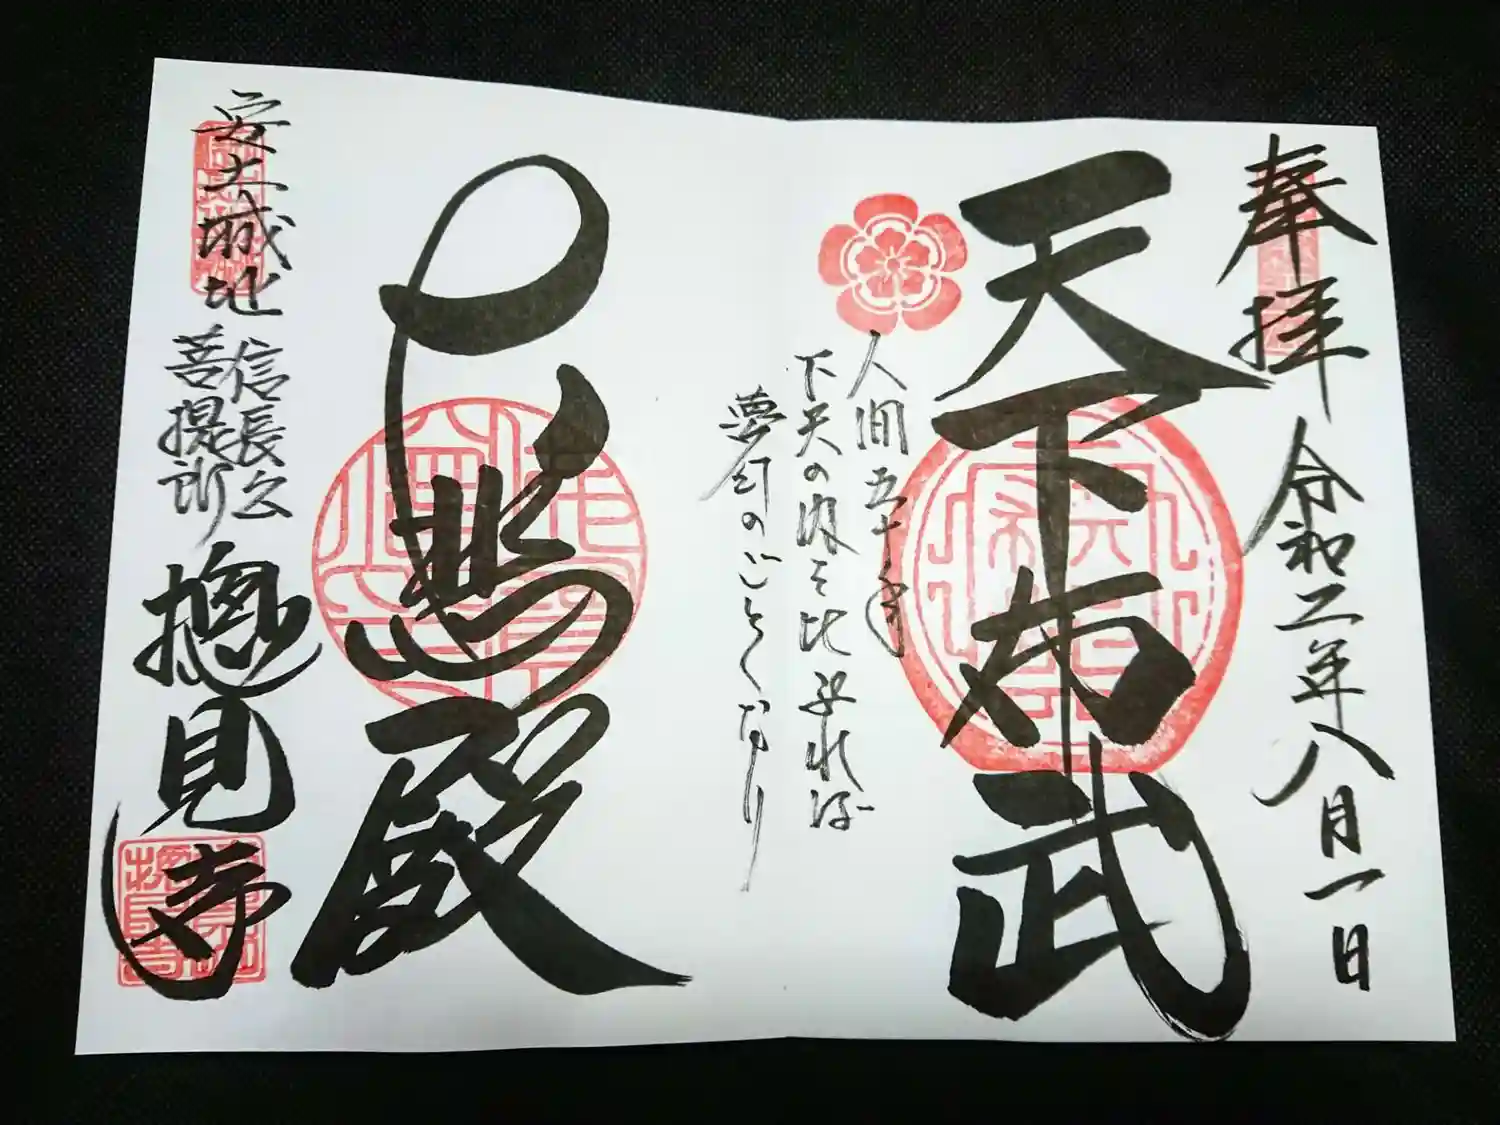 奉拝
令和二年八月一日
天下布武
人間五十年
下天の内を比ぶれば
夢幻のごとくなり
心
殿
安土城址
信長公
菩提所
摠見寺